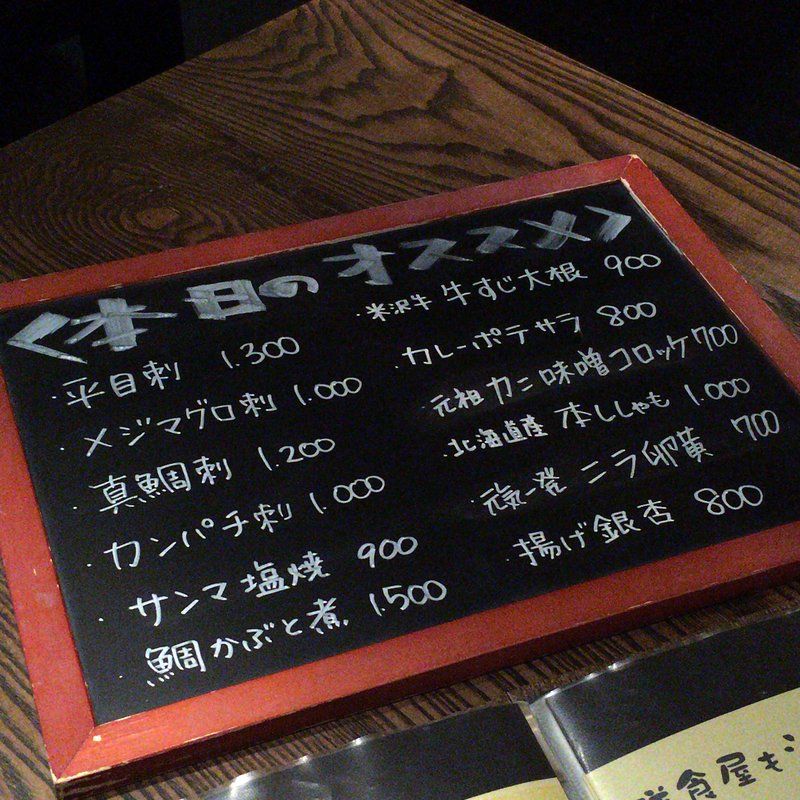 <本日のオススメ>
・平目刺 1.300
・メジマグロ刺 1.000
・真鯛刺 1.200
・カンパチ刺 1.000
・サンマ塩焼 900
・鯛かぶと煮 1.500
・米沢牛 牛すじ大根 900
・カレーポテサラ 800
・元祖カニ味噌コロッケ 700
・北海道産 本ししゃも 1.000
・元気一発 ニラ卵黄 700
・揚げ銀杏 800
洋食屋も